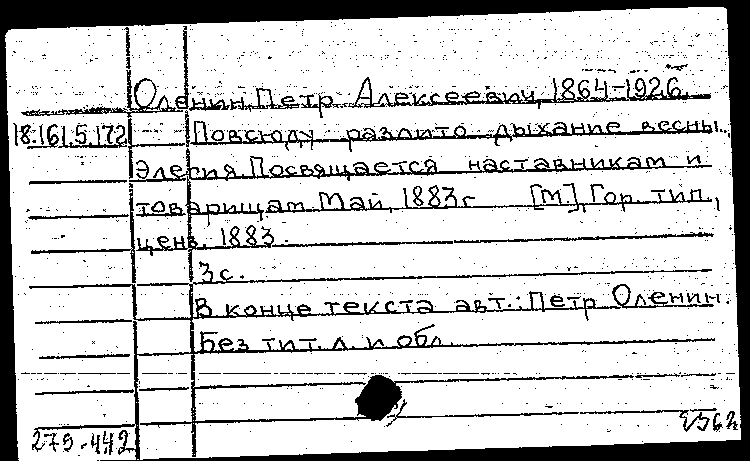 Оленин, Петр Алексеевич, 1864-1926.
18.161.5.172 Повсюду разлито дыхание весны.
Элегия. Посвящается наставникам и
товарищам. Май, 1883 г [М.], Гор. тип.,
ценз. 1883.
3 с.
В конце текста авт.: Петр Оленин.
Без тит. л. и обл.
279-442